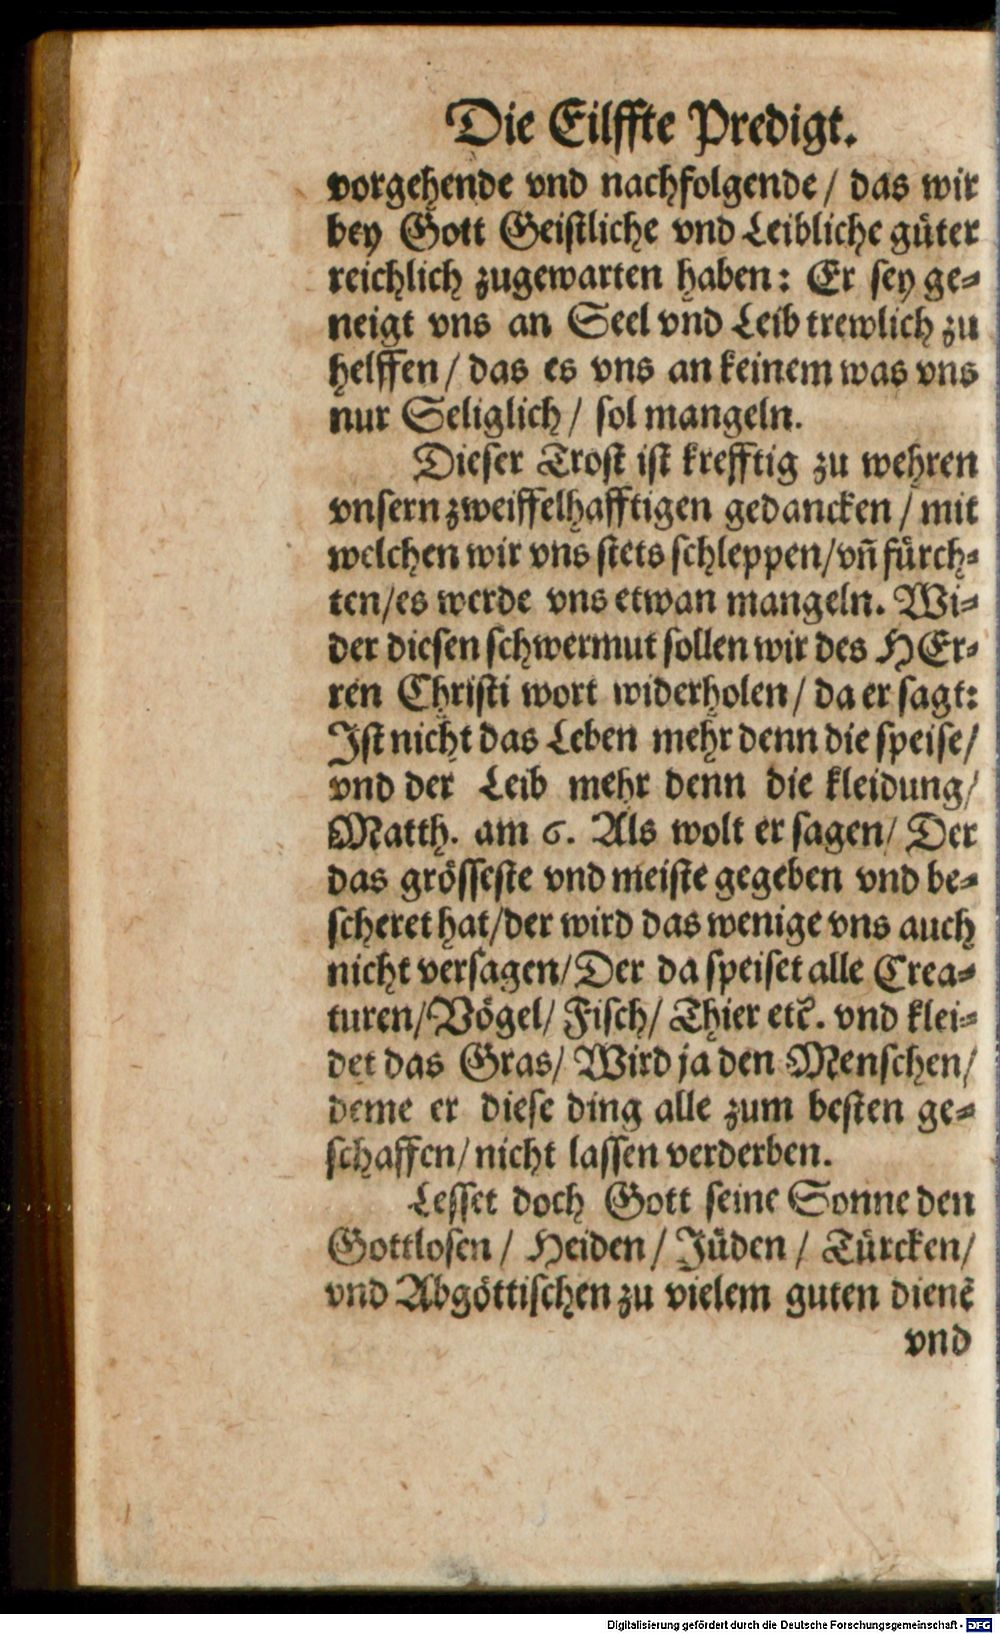 Die Eilffte Predigt.
vorgehende vnd nachfolgende / das wir
bey Gott Geistliche vnd Leibliche güter
reichlich zugewarten haben: Er sey ge-
neigt vns an Seel vnd Leib trewlich zu
helffen / das es vns an keinem was vns
nur Seliglich / sol mangeln.
Dieser Trost ist krefftig zu wehren
vnsern zweiffelhafftigen gedancken / mit
welchen wir vns stets schleppen/ vn̄ fürch-
ten/es werde vns etwan mangeln. Wi-
der diesen schwermut sollen wir des HEr-
ren Christi wort widerholen / da er sagt:
Ist nicht das Leben mehr denn die speise /
vnd der Leib mehr denn die kleidung /
Matth. am 6. Als wolt er sagen / Der
das grösseste vnd meiste gegeben vnd be-
scheret hat/der wird das wenige vns auch
nicht versagen/Der da speiset alle Crea-
turen/Vögel/ Fisch/ Thier etc. vnd klei-
det das Gras/ Wird ja den Menschen/
deme er diese ding alle zum besten ge-
schaffen/ nicht lassen verderben.
Lesset doch Gott seine Sonne den
Gottlosen / Heiden / Jüden / Türcken/
vnd Abgöttischen zu vielem guten dienē
vnd
Digitalisierung gefördert durch die Deutsche Forschungsgemeinschaft - DFG